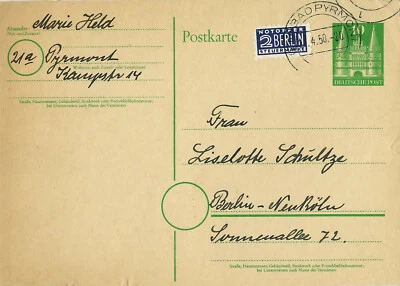 Absender: Marie Held
21a Pyrmont
Kampstr 14
Straße, Hausnummer, Gebäudeteil, Stockwerk oder Postschließfachnummer,
bei Untermietern auch Name des Vermieters
Postkarte
NOTOPFER
2 BERLIN
STEUERMARKE
BAD PYRMONT
4.50.
20
DEUTSCHE POST
Frau
Liselotte Schultze
Berlin-Neuköln
Sonnenallee 72.
Straße, Hausnummer, Gebäudeteil, Stockwerk oder Postschließfachnummer,
bei Untermietern auch Name des Vermieters